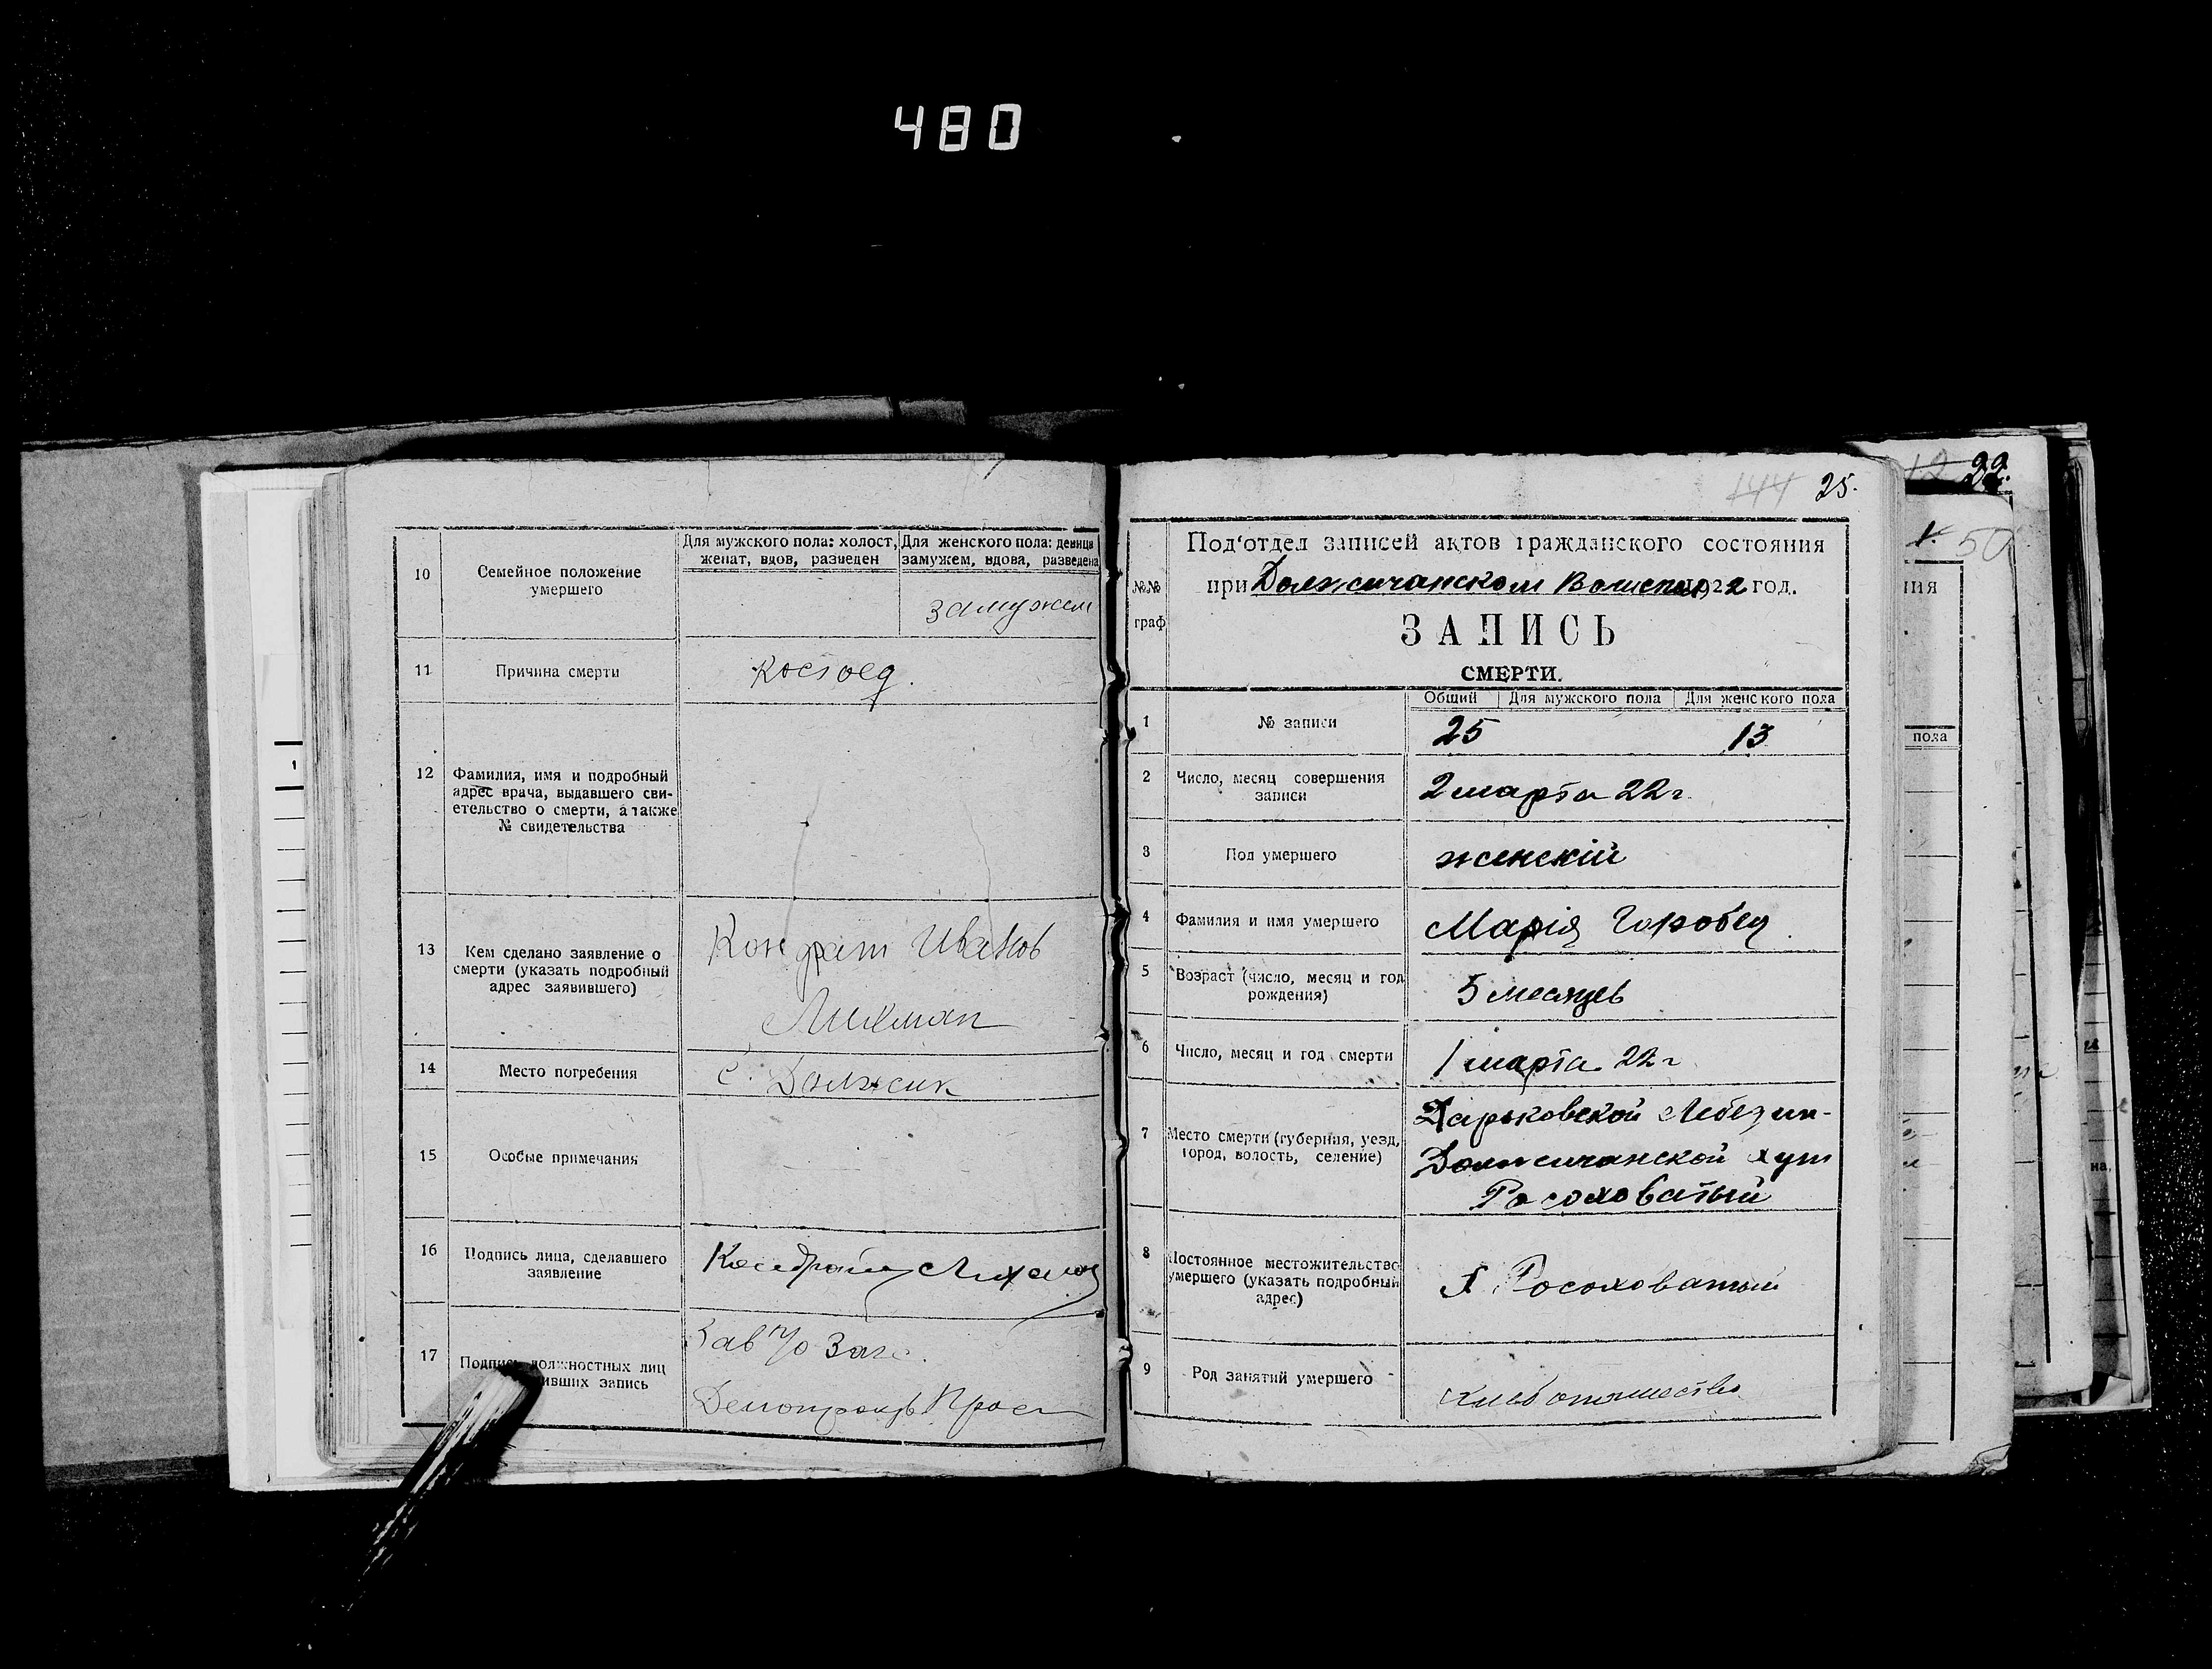 480
10
Семейное положение
умершего
Для мужского пола: холост,
женат, вдов, разведен
Для женского пола: девица
замужем, вдова, разведена
замужем
11
Причина смерти
Костоед.
12
Фамилия, имя и подробный
адрес врача, выдавшего сви-
етельство о смерти, а также
№ свидетельства
13
Кем сделано заявление о
смерти (указать подробный
адрес заявившего)
Кондрат Иванов
14
Место погребения
с. Должик
15
Особые примечания
16
Подпись лица, сделавшего
заявление
17
Подпись должностных лиц
ивших запись
Зав п/о Загс.
144 25.
№№
граф
Под‘отдел записей актов гражданского состояния
при Должичанском 1922 год.
ЗАПИСЬ
СМЕРТИ.
Общий
Для мужского пола
Для женского пола
1
№ записи
25
13
2
Число, месяц совершения
записи
2 марта 22 г.
3
Пол умершего
женскій
4
Фамилия и имя умершего
Марія Горобец.
5
Возраст (число, месяц и год
рождения)
5 месяцев
6
Число, месяц и год смерти
1 марта 22 г
7
Место смерти (губерния, уезд,
город, волость, селение)
Харьковской Лебедин-
Должичанской хут
Росоховатый
8
Постоянное местожительство
умершего (указать подробный
адрес)
х. Росоховатый
9
Род занятий умершего
хлебопашество
12
22.
1.
50
ния
пола
на,